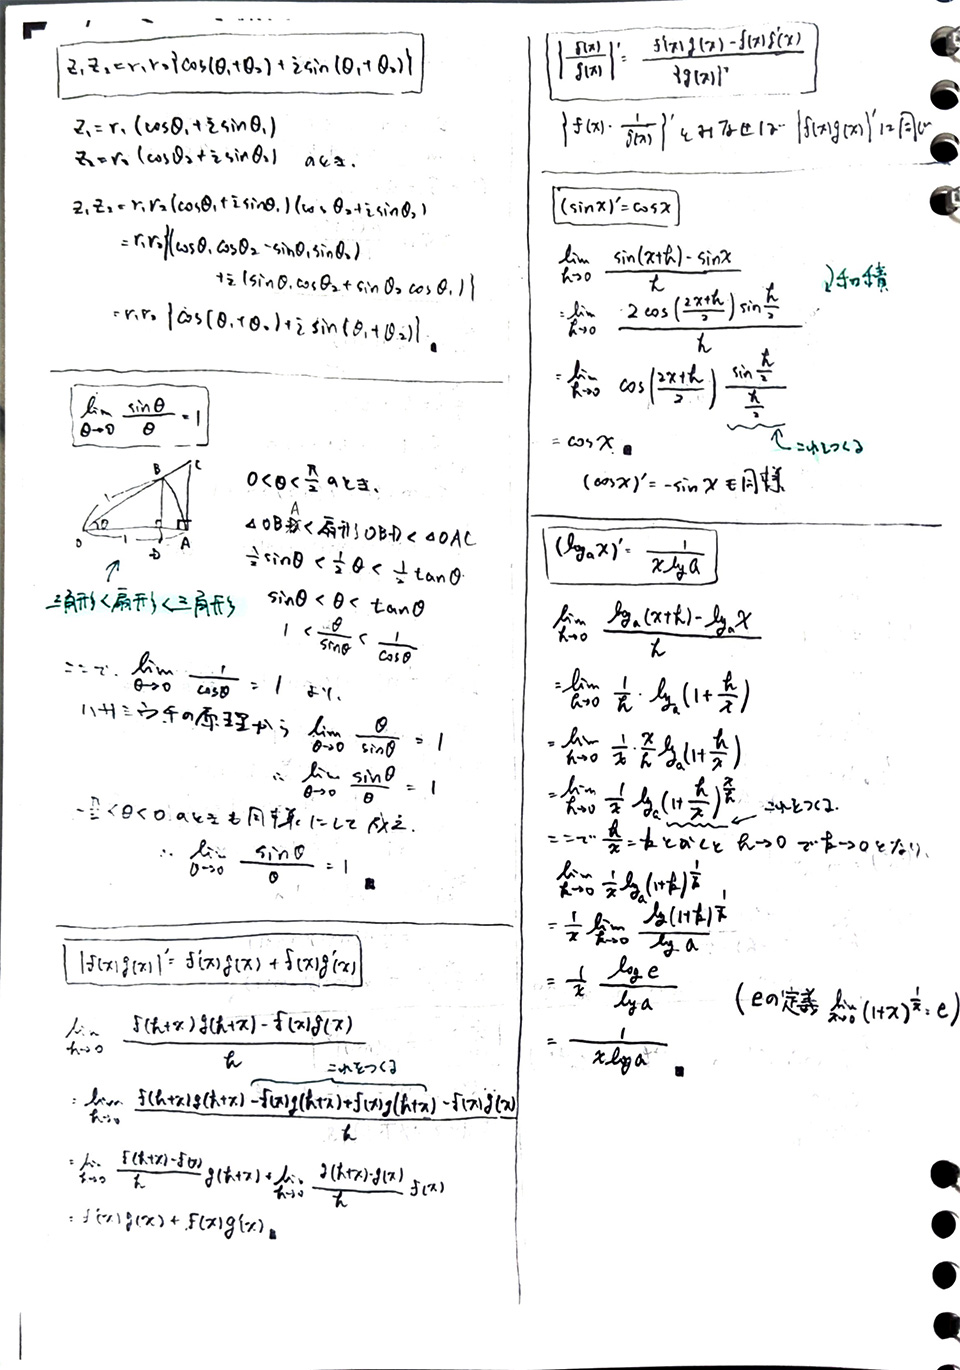 z₁z₂=r₁r₂{cos(θ₁+θ₂)+isin(θ₁+θ₂)}
z₁=r₁(cosθ₁+isinθ₁)
z₂=r₂(cosθ₂+isinθ₂) のとき、
z₁z₂=r₁r₂(cosθ₁+isinθ₁)(cosθ₂+isinθ₂)
=r₁r₂{(cosθ₁cosθ₂-sinθ₁sinθ₂)
+i(sinθ₁cosθ₂+sinθ₂cosθ₁)}
=r₁r₂{cos(θ₁+θ₂)+isin(θ₁+θ₂)}
lim θ→0 sinθ/θ=1
B C
1 θ
O 1 D A
三角形<扇形<三角形
0<θ<π/2 のとき、
△OBA<扇形OBA<△OAC
1/2 sinθ<1/2 θ<1/2 tanθ
sinθ<θ<tanθ
1<θ/sinθ<1/cosθ
ここで、lim θ→0 1/cosθ=1 より、
ハサミウチの原理から lim θ→0 θ/sinθ=1
∴ lim θ→0 sinθ/θ=1
-π/2<θ<0 のときも同様にして成立.
∴ lim θ→0 sinθ/θ=1
{f(x)g(x)}'=f'(x)g(x)+f(x)g'(x)
lim h→0 f(h+x)g(h+x)-f(x)g(x)/h
これをつくる
=lim h→0 f(h+x)g(h+x)-f(x)g(h+x)+f(x)g(h+x)-f(x)g(x)/h
=lim h→0 f(h+x)-f(x)/h g(h+x)+lim h→0 g(h+x)-g(x)/h f(x)
=f'(x)g(x)+f(x)g'(x)
{f(x)/g(x)}'=f'(x)g(x)-f(x)g'(x)/{g(x)}²
{f(x)・1/g(x)}' とみなせば {f(x)g(x)}'に同じ
(sinx)'=cosx
lim h→0 sin(x+h)-sinx/h
和積
=lim h→0 2cos(2x+h/2)sin h/2/h
=lim h→0 cos(2x+h/2) sin h/2/h/2
=cosx
これをつくる
(cosx)'=-sinxも同様
(logₐx)'=1/xloga
lim h→0 logₐ(x+h)-logₐx/h
=lim h→0 1/h・logₐ(1+h/x)
=lim h→0 1/x・x/h logₐ(1+h/x)
=lim h→0 1/x logₐ(1+h/x)^(x/h) これをつくる.
ここで h/x=kとおくと h→0でk→0となり、
lim k→0 1/x logₐ(1+k)^(1/k)
=1/x lim k→0 log(1+k)^(1/k)/log a
=1/x log e/log a
(eの定義 lim x→0 (1+x)^(1/x)=e)
=1/xloga